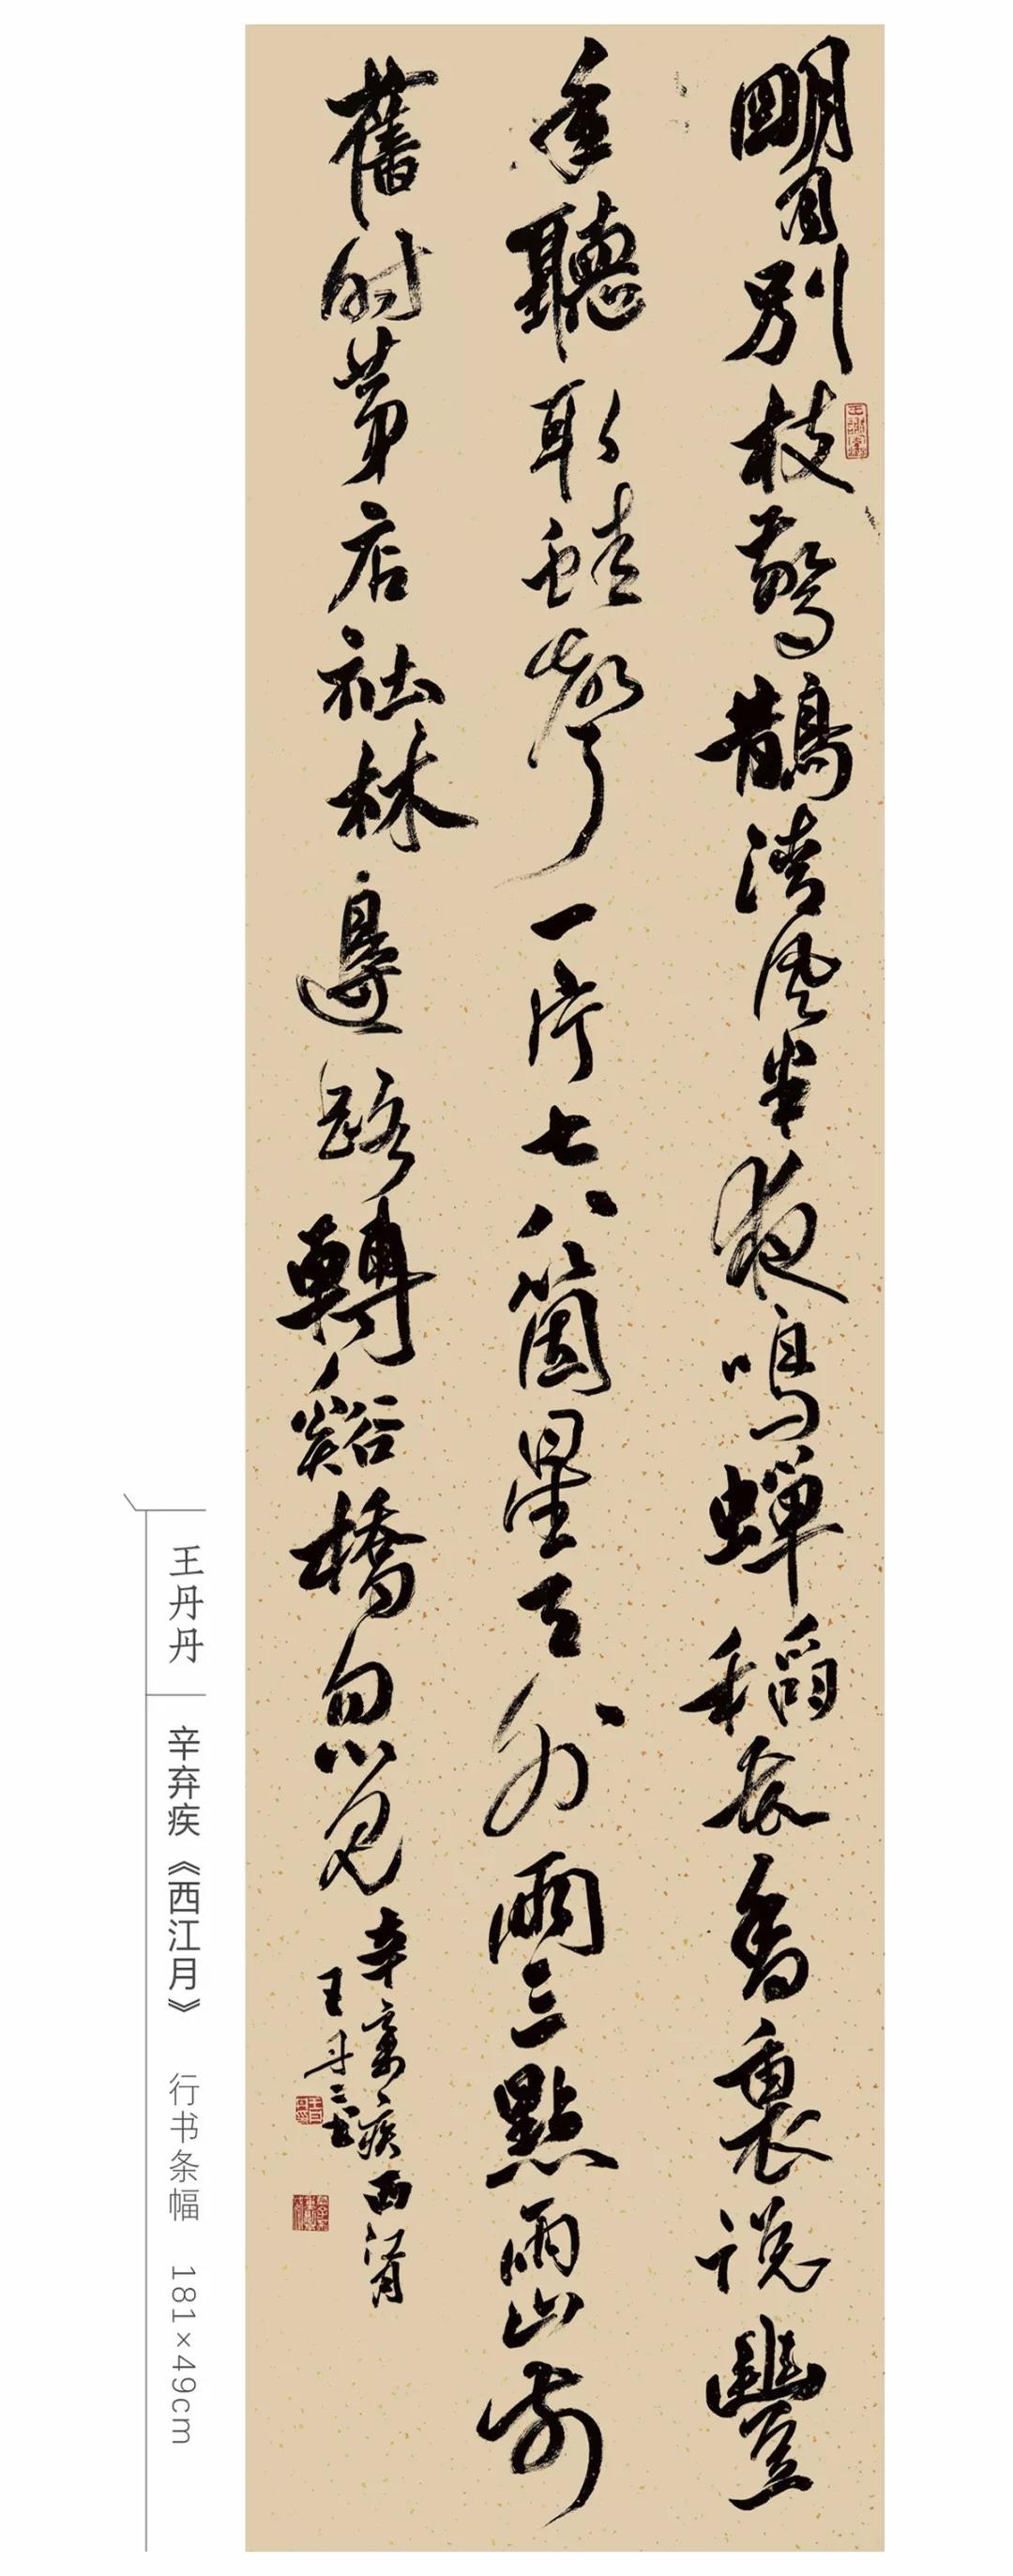 明月別枝驚鵲清風半夜鳴蟬稻花香裏說豐
年聽取蛙聲一片七八箇星天外兩三點雨山前
舊時茅店社林邊路轉谿橋忽見
辛棄疾西江月
王丹丹書
王丹丹
辛弃疾《西江月》 行书条幅 181×49cm